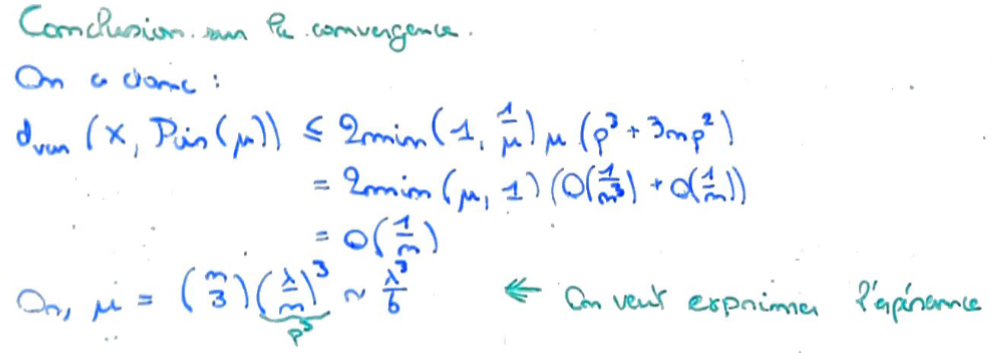 Conclusion sur la convergence.
On a donc :
d_var (X, Poi(μ)) ≤ 2min(1, 1/μ) μ (p³ + 3mp²)
= 2min(μ, 1) (O(1/m³) + O(1/m))
= O(1/m)
Or, μ = (m 3) (λ/m)³ ~ λ³/6 ← On veut exprimer l'espérance
p³